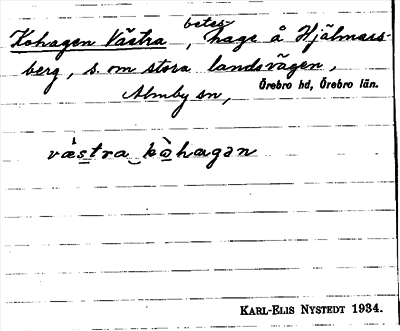 Kohagen Västra, beteshage å Hjälmars-
berg, s. om stora landsvägen,
Almby sn, Örebro hd, Örebro län.
væ̀stra kòhagan
KARL-ELIS NYSTEDT 1934.